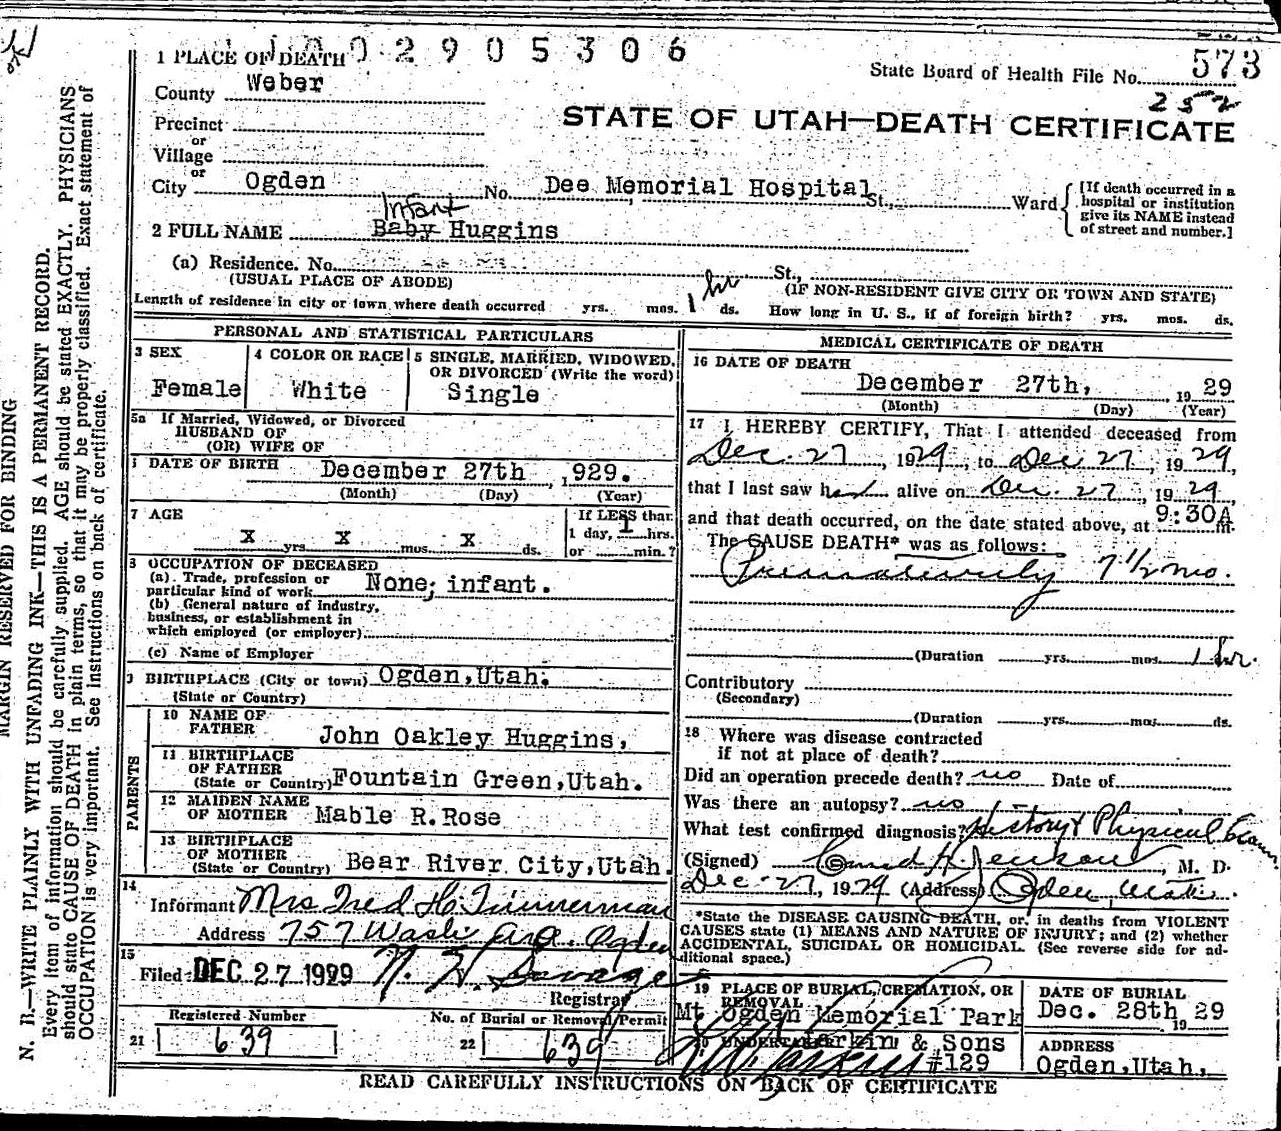 002905306
1 PLACE OF DEATH
State Board of Health File No. 573
252
County Weber
STATE OF UTAH—DEATH CERTIFICATE
Precinct
or
Village
or
City Ogden No. Dee Memorial Hospital St., Ward
[If death occurred in a
hospital or institution
give its NAME instead
of street and number.]
Infant
2 FULL NAME Baby Huggins
(a) Residence. No. St.,
(USUAL PLACE OF ABODE) (IF NON-RESIDENT GIVE CITY OR TOWN AND STATE)
Length of residence in city or town where death occurred yrs. mos. 1 hr ds. How long in U. S., if of foreign birth? yrs. mos. ds.
PERSONAL AND STATISTICAL PARTICULARS
3 SEX
Female
4 COLOR OR RACE
White
5 SINGLE, MARRIED, WIDOWED,
OR DIVORCED (Write the word)
Single
5a If Married, Widowed, or Divorced
HUSBAND OF
(OR) WIFE OF
DATE OF BIRTH December 27th, 1929.
(Month) (Day) (Year)
7 AGE
X yrs. X mos. X ds.
If LESS than
1 day, 1 hrs.
or min.?
8 OCCUPATION OF DECEASED
(a) Trade, profession or
particular kind of work None; infant.
(b) General nature of industry,
business, or establishment in
which employed (or employer)
(c) Name of Employer
9 BIRTHPLACE (City or town) Ogden,Utah.
(State or Country)
PARENTS
10 NAME OF
FATHER John Oakley Huggins,
11 BIRTHPLACE
OF FATHER
(State or Country) Fountain Green,Utah.
12 MAIDEN NAME
OF MOTHER Mable R.Rose
13 BIRTHPLACE
OF MOTHER
(State or Country) Bear River City,Utah.
14
Informant Mrs Fred H Timmerman
Address 757 Wash Ave. Ogden
15
Filed DEC 27 1929 N. H. Savage
Registrar
Registered Number
21 639
No. of Burial or Removal Permit
22 639
MEDICAL CERTIFICATE OF DEATH
16 DATE OF DEATH
December 27th, 1929
(Month) (Day) (Year)
17 I HEREBY CERTIFY, That I attended deceased from
Dec. 27, 1929, to Dec 27, 1929,
that I last saw her alive on Dec. 27, 1929,
and that death occurred, on the date stated above, at 9:30A m.
The CAUSE DEATH* was as follows:
Prematurity 7 1/2 mo.
(Duration yrs. mos. 1 hr.
Contributory
(Secondary)
(Duration yrs. mos. ds.
18 Where was disease contracted
if not at place of death?
Did an operation precede death? no Date of
Was there an autopsy? no
What test confirmed diagnosis? History & Physical Exam
(Signed) Jenkins, M. D.
Dec. 27, 1929 (Address) Ogden, Utah.
*State the DISEASE CAUSING DEATH, or, in deaths from VIOLENT
CAUSES state (1) MEANS AND NATURE OF INJURY; and (2) whether
ACCIDENTAL, SUICIDAL OR HOMICIDAL. (See reverse side for ad-
ditional space.)
19 PLACE OF BURIAL, CREMATION, OR
REMOVAL
Mt Ogden Memorial Park
DATE OF BURIAL
Dec. 28th 1929
20 UNDERTAKER Larkin & Sons
#129
ADDRESS
Ogden,Utah,
READ CAREFULLY INSTRUCTIONS ON BACK OF CERTIFICATE
MARGIN RESERVED FOR BINDING
N. B.—WRITE PLAINLY WITH UNFADING INK—THIS IS A PERMANENT RECORD.
Every item of information should be carefully supplied. AGE should be stated EXACTLY. PHYSICIANS
should state CAUSE OF DEATH in plain terms, so that it may be properly classified. Exact statement of
OCCUPATION is very important. See instructions on back of certificate.